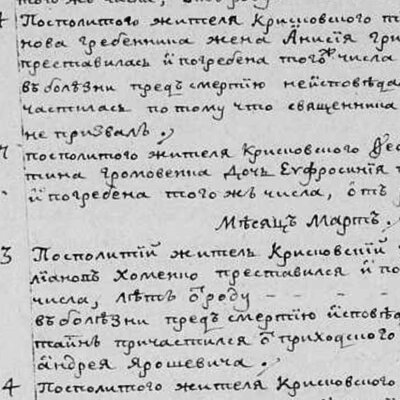 4 Посполитого жителя Крисковского
нова гребенника жена Анисія
преставилась и погребена того ж числа
въ болѣзни предъ смертію неисповѣда
частилась потому что священника
не призвалъ.
посполитого жителя Крисковского
тина громовенка дочь Еуфросинія
и погребена того жъ числа, отъ
Мѣсяцъ Мартъ.
3 Посполитій житель Крисковскій
ліановъ Хоменко преставился и по
числа, лѣтъ ѿ роду - - -
въ болѣзни предъ смертію исповѣд
таинъ причастился ѿ приходского
андрея Ярошевича.
4 Посполитого жителя Крисковского